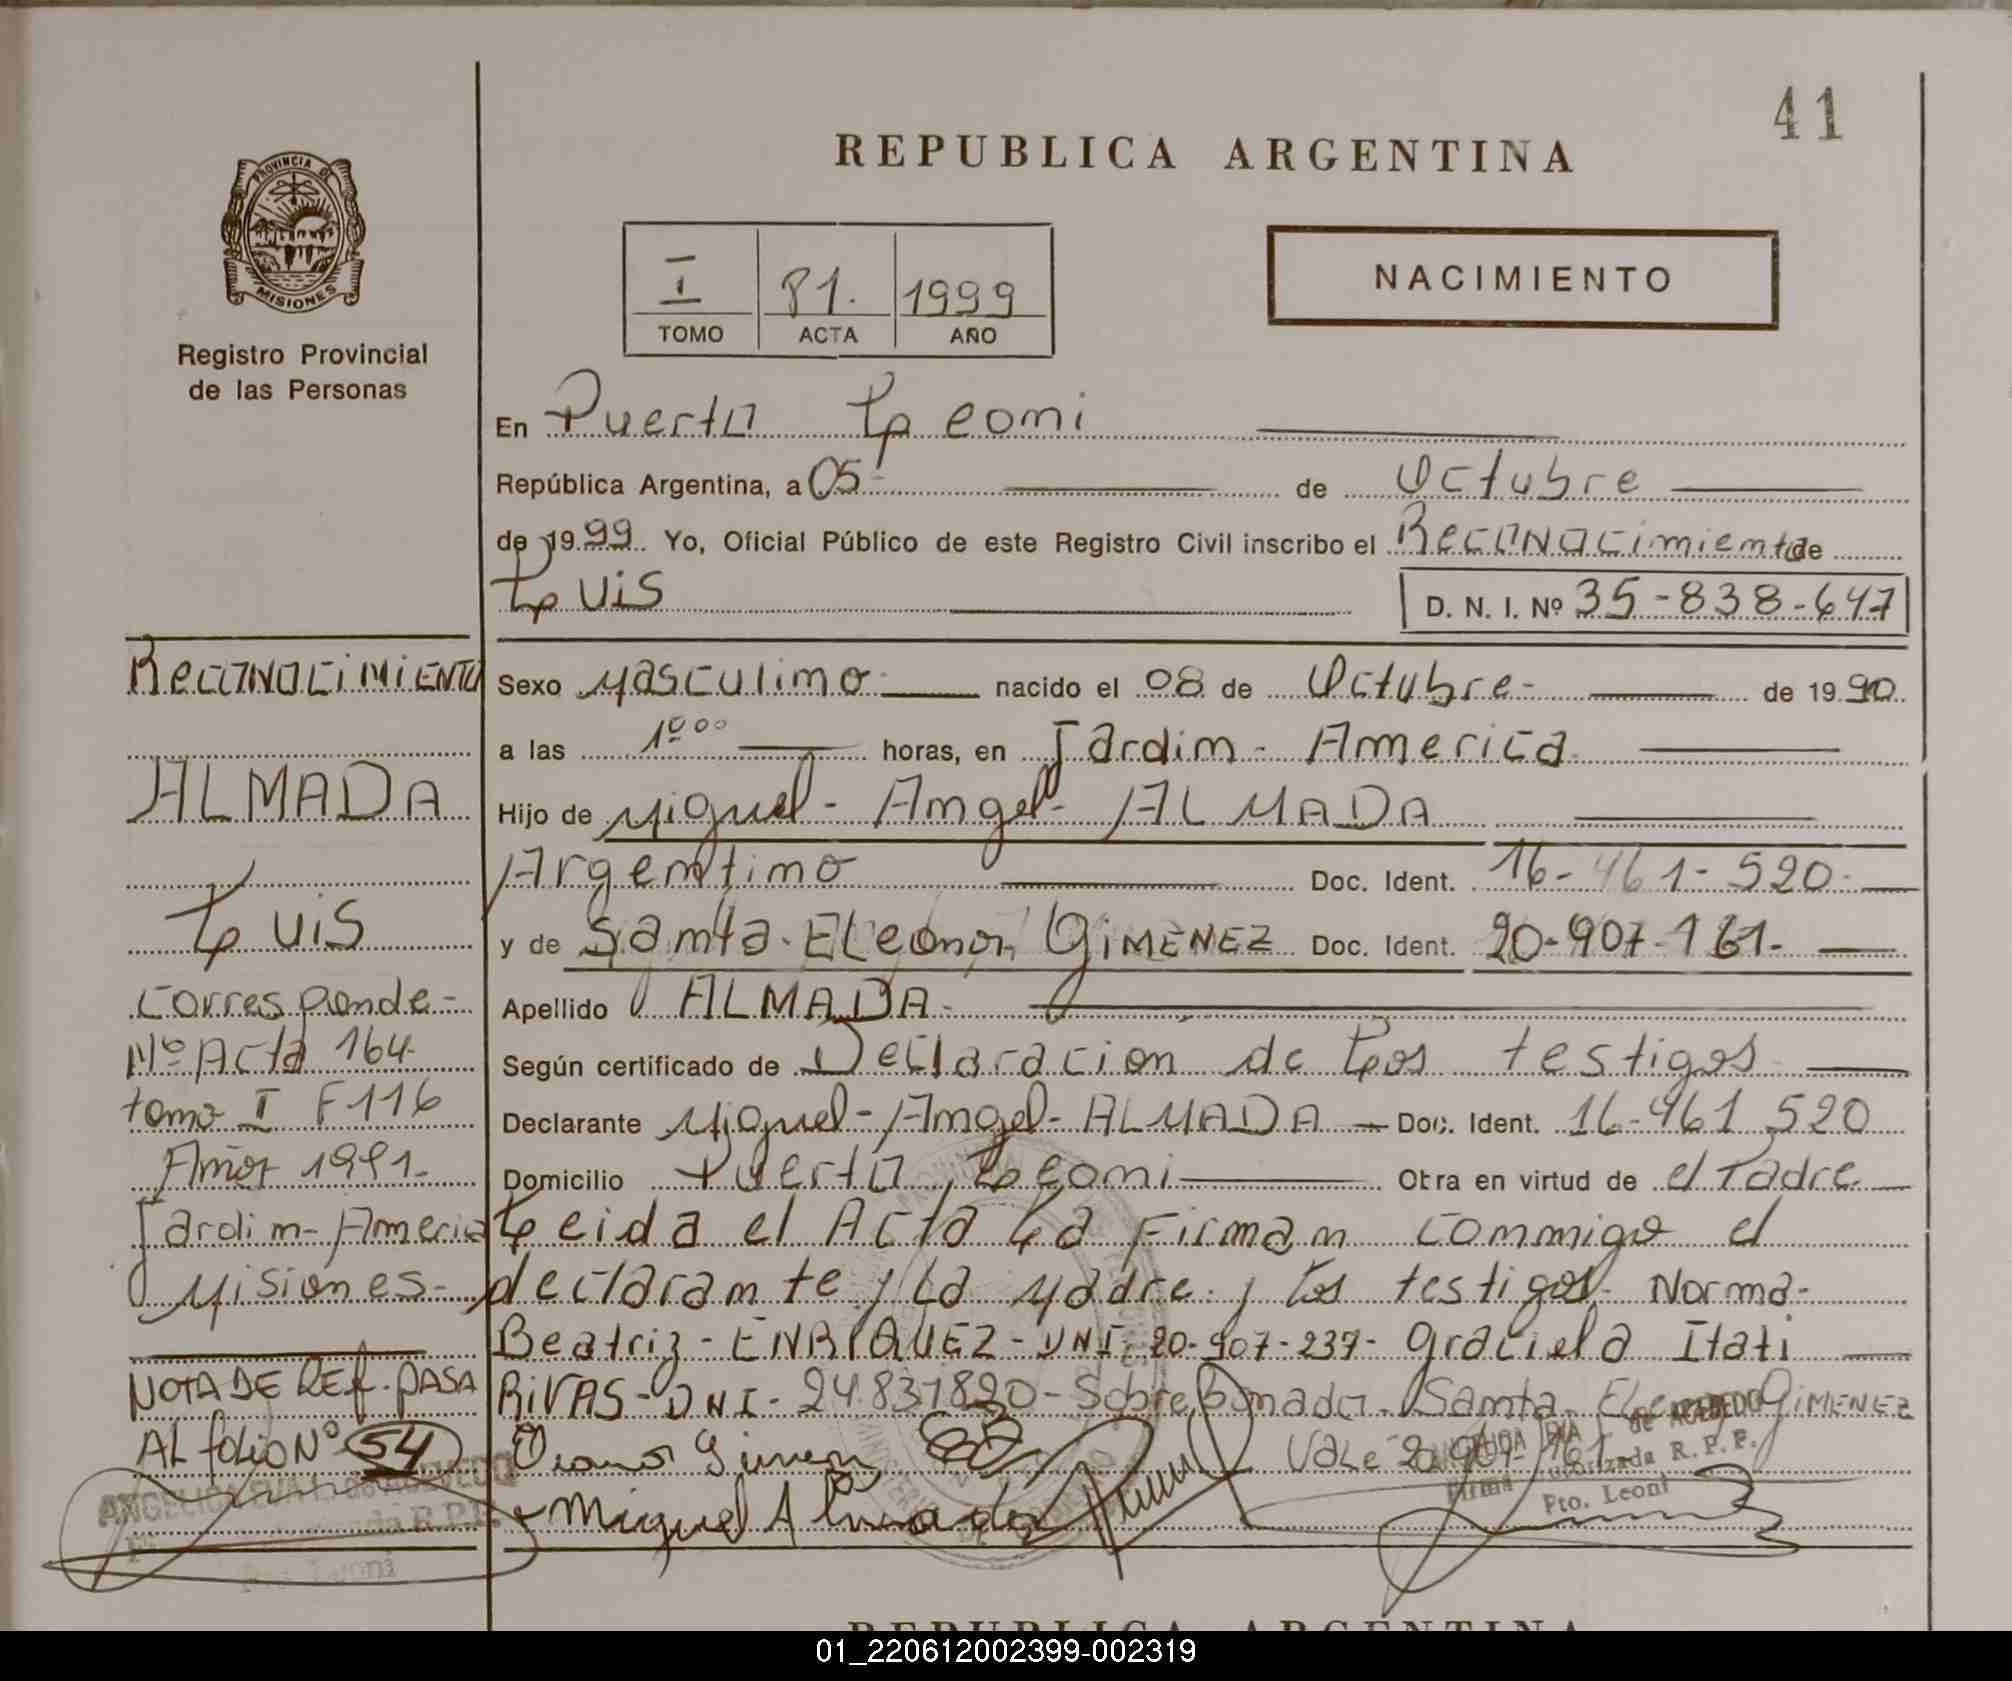 41
REPUBLICA ARGENTINA
PROVINCIA DE
MISIONES
Registro Provincial
de las Personas
I 81. 1999
TOMO ACTA AÑO
NACIMIENTO
En Puerto Leoni
República Argentina, a 05 de Octubre
de 1999 Yo, Oficial Público de este Registro Civil inscribo el Reconocimiento de
Luis D. N. I. Nº 35-838-647
Sexo Masculino nacido el 08 de Octubre- de 1990
a las 1º⁰⁰ horas, en Jardin- America
Hijo de Miguel- Angel- ALMADA
Argentino Doc. Ident. 16-461-520-
y de Santa- ELeonor GiMENEZ Doc. Ident. 20-907-161-
Apellido ALMADA-
Según certificado de Declaracion de Los testigos
Declarante Miguel- Angel- ALMADA Doc. Ident. 16-461 520
Domicilio Puerto Leoni Otra en virtud de el Padre
Leida el Acta La Firman conmigo el
declarante y La Madre y Los testigos Norma-
Beatriz- ENRIQUEZ- DNI- 20-907-237- Graciela Itati
RIVAS- DNI- 24.831820- Sobre Bonado- Santa- Eleonor GIMENEZ
VaLe 20-907-161
Miguel Almada
de ACEVEDO
Firma Autorizada R. P. P.
Pto. Leoni
ReCONOCiMiENTO
ALMADA
Luis
Corresponde-
Nº Acta 164-
tomo I F116
Año 1991-
Jardin- America
Misiones-
NOTA DE REf. PASA
AL foLio Nº 54
REPUBLICA ARGENTINA
01_220612002399-002319